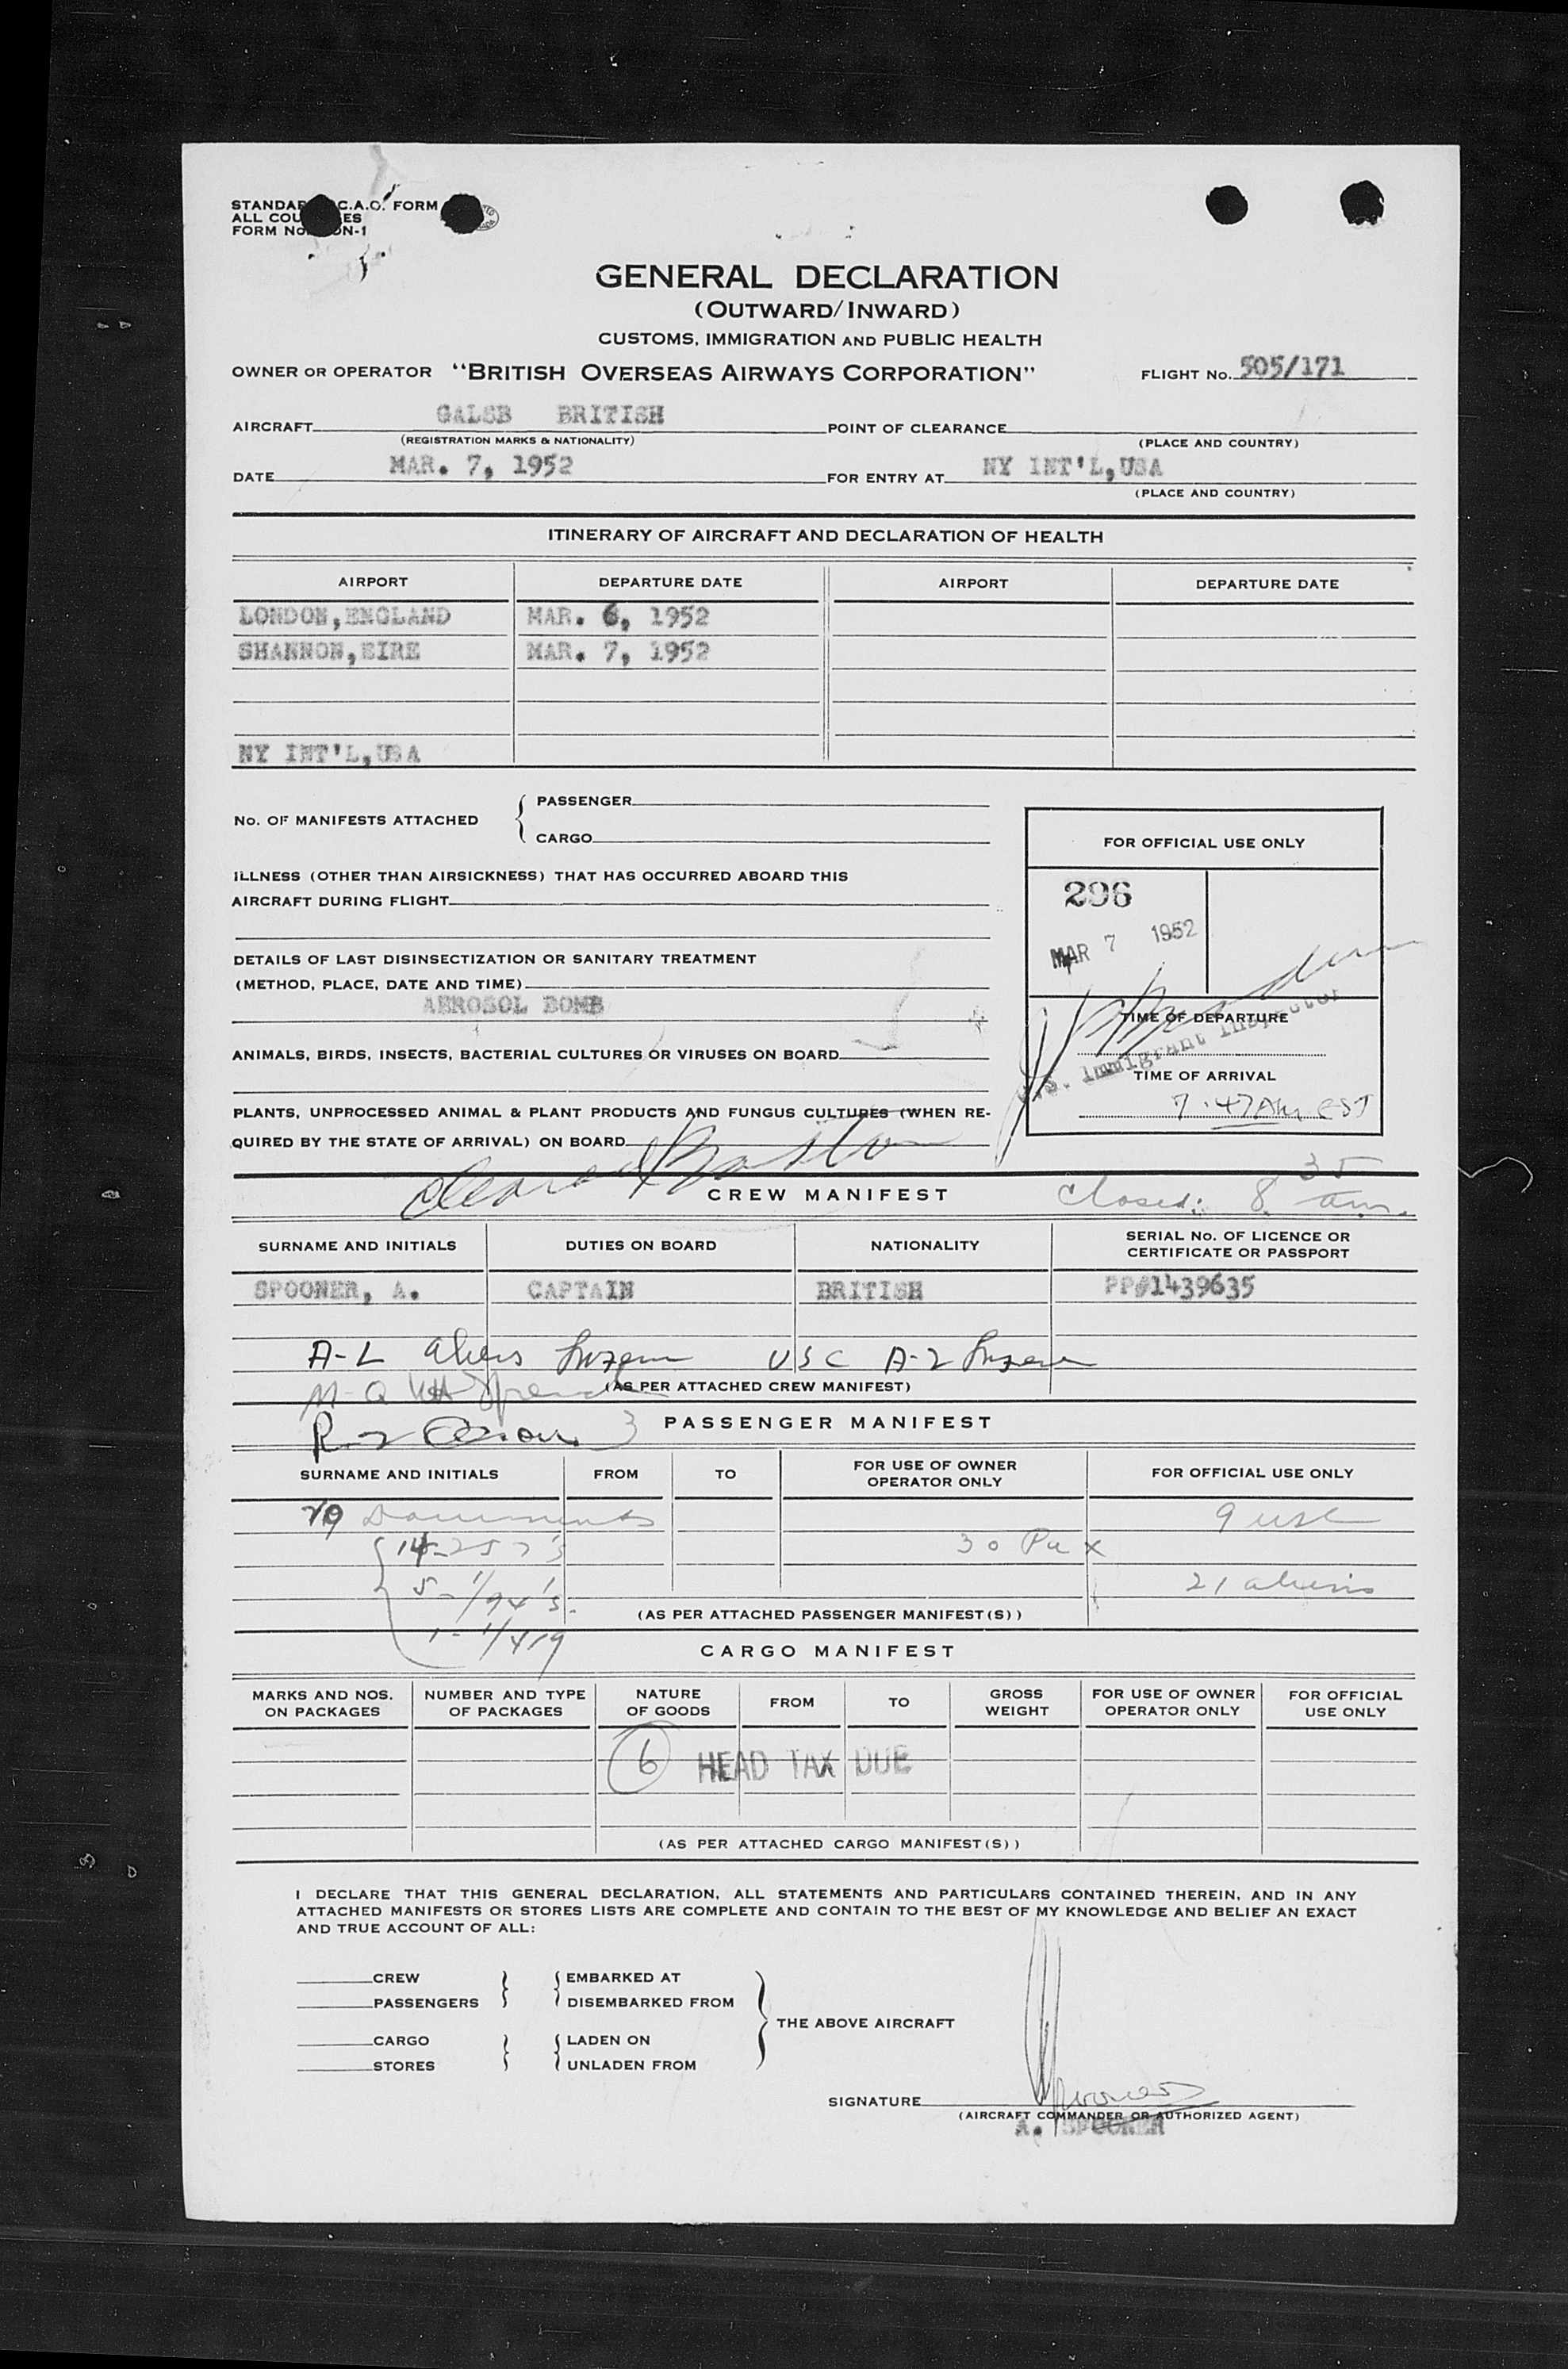 STANDARD I.C.A.O. FORM
ALL COUNTRIES
FORM No. ON-1
GENERAL DECLARATION
(OUTWARD/INWARD)
CUSTOMS, IMMIGRATION AND PUBLIC HEALTH
OWNER OR OPERATOR "BRITISH OVERSEAS AIRWAYS CORPORATION" FLIGHT No. 505/171
AIRCRAFT GALSB BRITISH POINT OF CLEARANCE
(REGISTRATION MARKS & NATIONALITY) (PLACE AND COUNTRY)
DATE MAR. 7, 1952 FOR ENTRY AT NY INT'L,USA
(PLACE AND COUNTRY)
ITINERARY OF AIRCRAFT AND DECLARATION OF HEALTH
AIRPORT DEPARTURE DATE AIRPORT DEPARTURE DATE
LONDON,ENGLAND MAR. 6, 1952
SHANNON,EIRE MAR. 7, 1952
NY INT'L,USA
No. OF MANIFESTS ATTACHED { PASSENGER
CARGO
FOR OFFICIAL USE ONLY
ILLNESS (OTHER THAN AIRSICKNESS) THAT HAS OCCURRED ABOARD THIS
AIRCRAFT DURING FLIGHT
296
MAR 7 1952
DETAILS OF LAST DISINSECTIZATION OR SANITARY TREATMENT
(METHOD, PLACE, DATE AND TIME)
AEROSOL BOMB
TIME OF DEPARTURE
Immigrant Inspector
ANIMALS, BIRDS, INSECTS, BACTERIAL CULTURES OR VIRUSES ON BOARD
TIME OF ARRIVAL
7:47AM EST
PLANTS, UNPROCESSED ANIMAL & PLANT PRODUCTS AND FUNGUS CULTURES (WHEN RE-
QUIRED BY THE STATE OF ARRIVAL) ON BOARD
CREW MANIFEST
Closed: 8 35 am.
SURNAME AND INITIALS DUTIES ON BOARD NATIONALITY SERIAL No. OF LICENCE OR
CERTIFICATE OR PASSPORT
SPOONER, A. CAPTAIN BRITISH PP#1439635
A-L USC A-2
(AS PER ATTACHED CREW MANIFEST)
PASSENGER MANIFEST
SURNAME AND INITIALS FROM TO FOR USE OF OWNER
OPERATOR ONLY FOR OFFICIAL USE ONLY
Documents 9 USC
14-257's 30 Pax
5-1/94's. 21 aliens
(AS PER ATTACHED PASSENGER MANIFEST(S))
1-1/419
CARGO MANIFEST
MARKS AND NOS.
ON PACKAGES NUMBER AND TYPE
OF PACKAGES NATURE
OF GOODS FROM TO GROSS
WEIGHT FOR USE OF OWNER
OPERATOR ONLY FOR OFFICIAL
USE ONLY
6 HEAD TAX DUE
(AS PER ATTACHED CARGO MANIFEST(S))
I DECLARE THAT THIS GENERAL DECLARATION, ALL STATEMENTS AND PARTICULARS CONTAINED THEREIN, AND IN ANY
ATTACHED MANIFESTS OR STORES LISTS ARE COMPLETE AND CONTAIN TO THE BEST OF MY KNOWLEDGE AND BELIEF AN EXACT
AND TRUE ACCOUNT OF ALL:
CREW EMBARKED AT
PASSENGERS DISEMBARKED FROM
THE ABOVE AIRCRAFT
CARGO LADEN ON
STORES UNLADEN FROM
SIGNATURE
(AIRCRAFT COMMANDER OR AUTHORIZED AGENT)
A. SPOONER